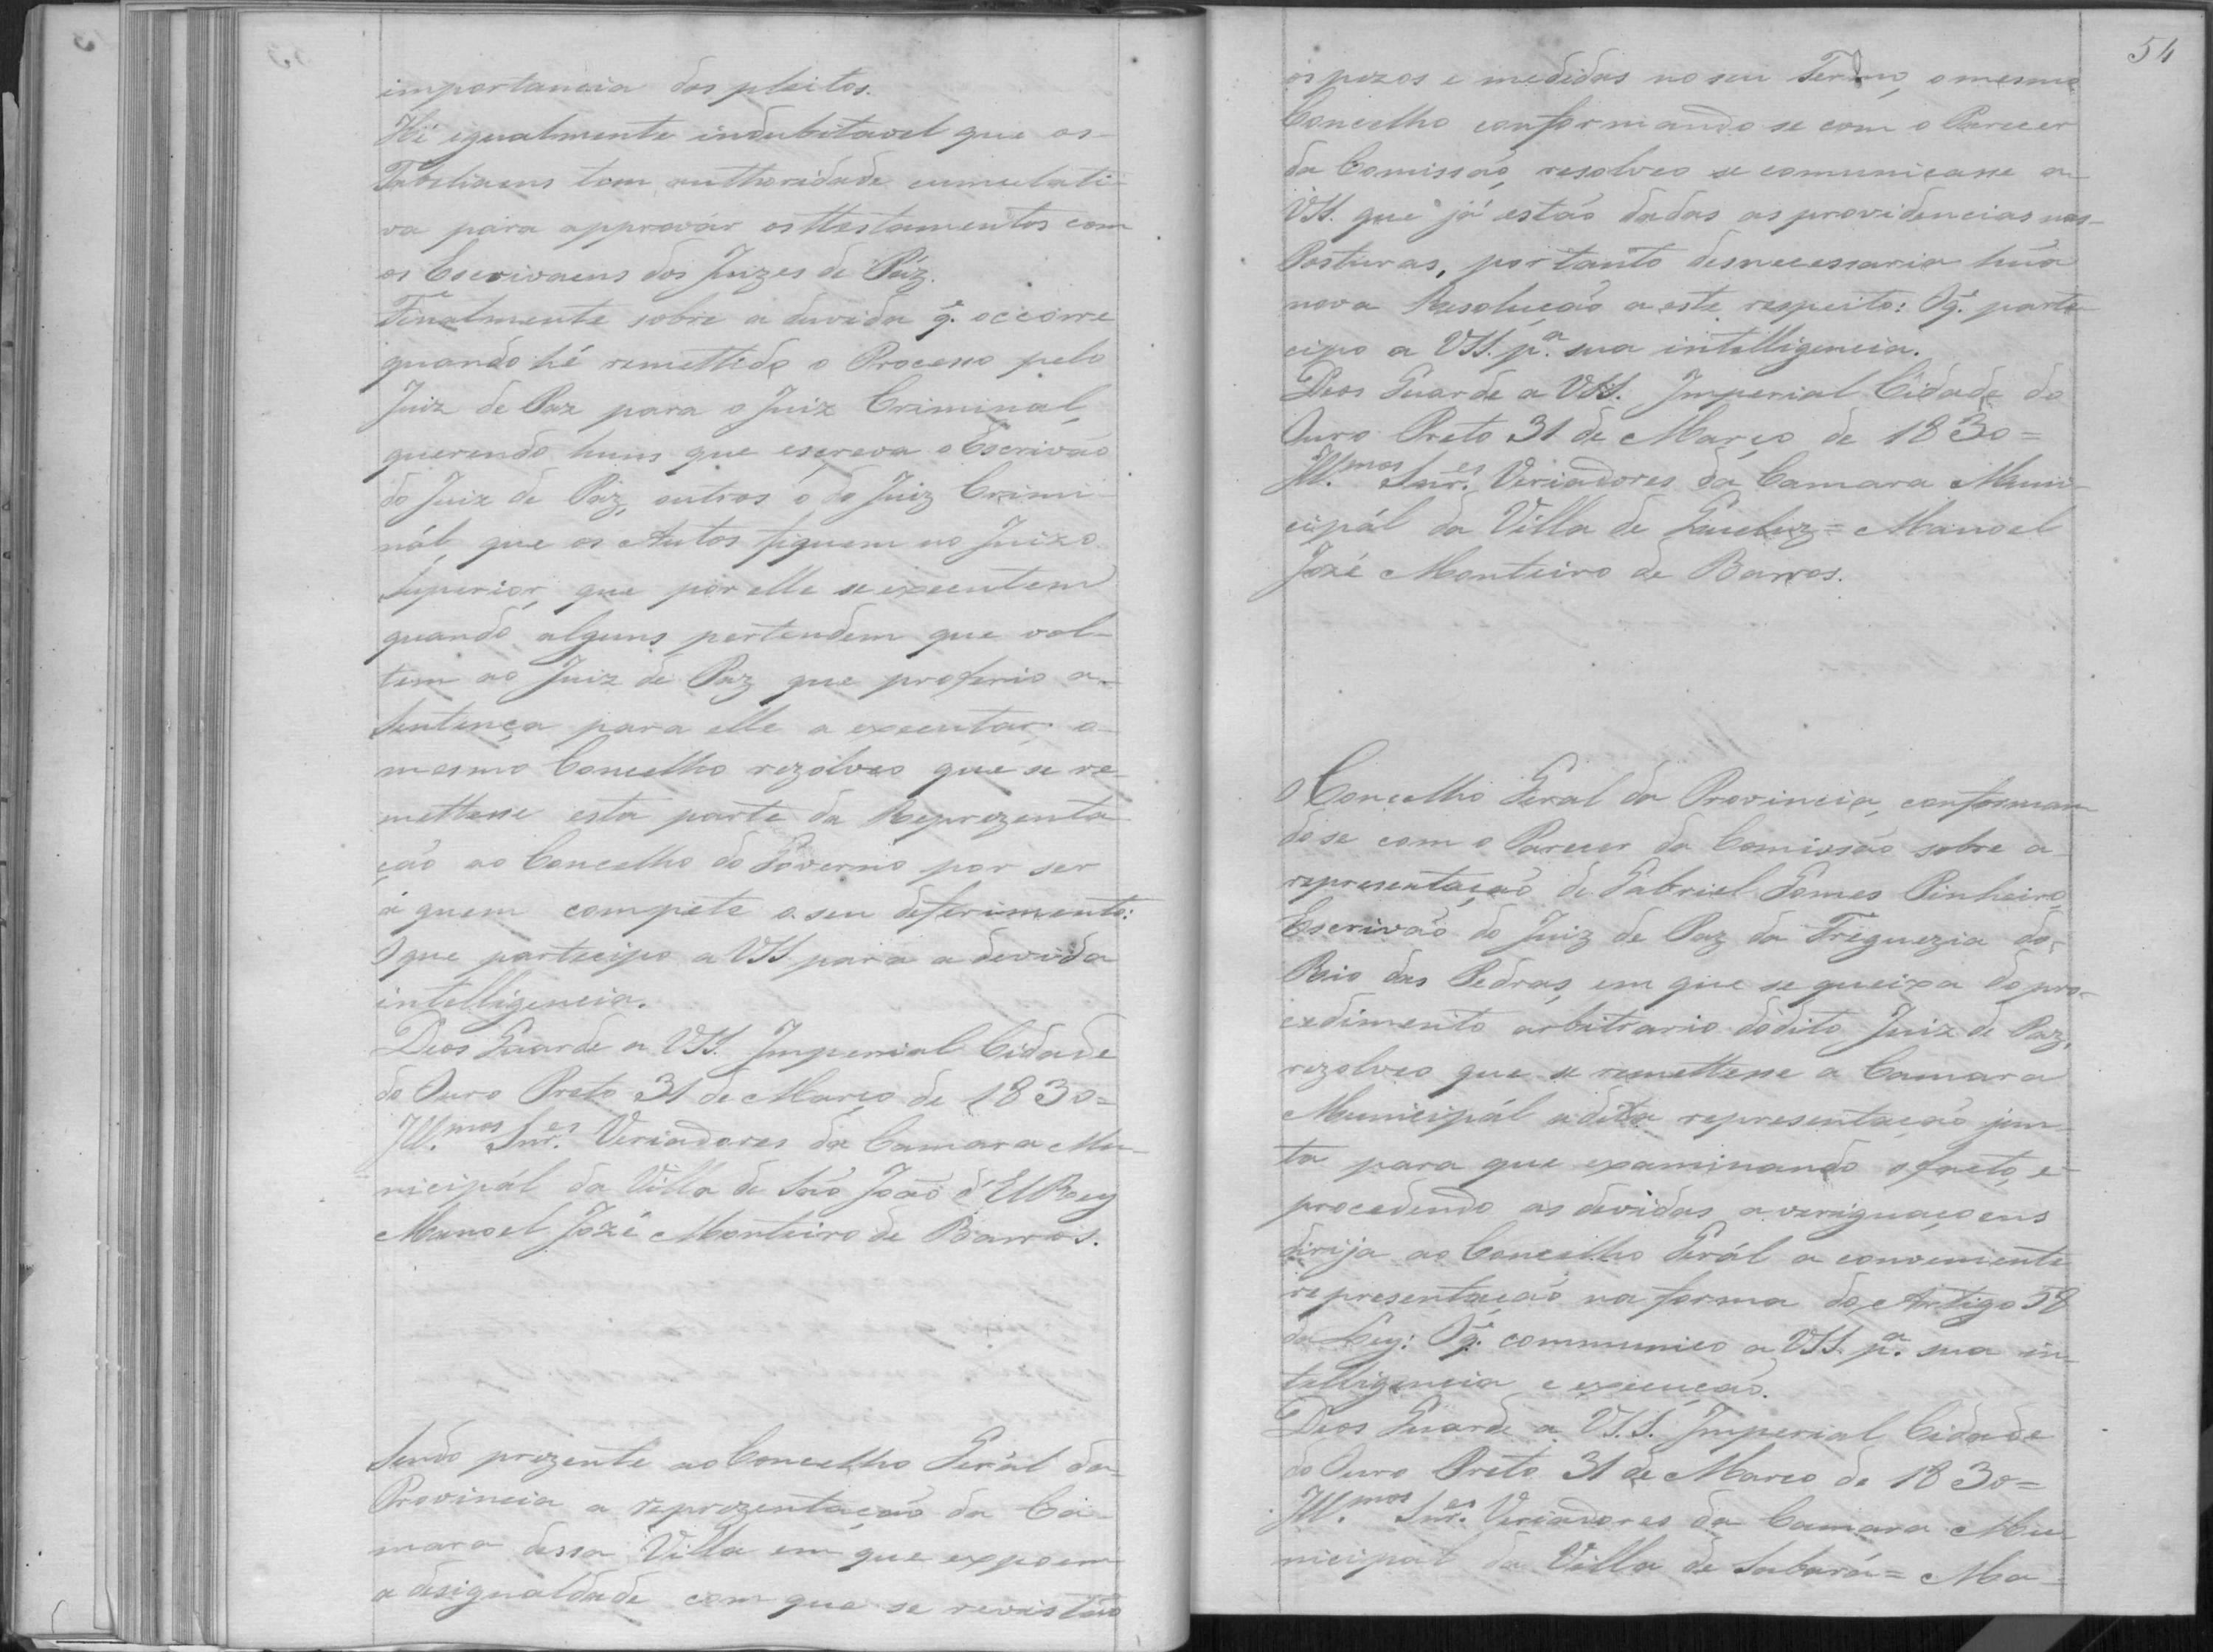 importancia dos pleitos.
Hé igualmente indubitavel que os
Tabeliaens tem authoridade cumulati-
va para approvár os ttestamentos com
os Escrivaens dos Juizes de Páz.
Finalmente sobre a duvida q.e occorre
quando hé remettido o Processo pelo
Juiz de Paz para o Juiz Criminal,
querendo huns que escreva o Escrivão
do Juiz de Páz, outros o do Juiz Crimi-
nál, que os Autos fiquem no Juizo
Superior, que por elle se executem
quando alguns pertendem que vol-
tem ao Juiz de Paz que proferio a
Sentença para elle a executar: o
mesmo Concelho rezolveo que se re-
mettesse esta parte da Reprezenta
ção ao Concelho do Governo por ser
á quem compete o seu deferimento:
O que partecipo a VSS. para a devida
intelligencia.
Deos Guarde a VSS. Imperial Cidade
do Ouro Preto 31 de Março de 1830=
Ill.mos Snr.es Veriadores da Camara Mu-
nicipál da Villa de São João d'ElRey
Manoel Jozé Monteiro de Barros.
Sendo prezente ao Concelho Gerál da
Provincia a reprezentação da Ca-
mara dessa Villa em que expoem
a desigualdade com que se revistão
54
os pezos e medidas no seu Termo, o mesmo
Concelho conformando se com o Parecer
da Comissão, resolveo se comunicasse a
VSS. que já estão dadas as providencias nas
Posturas, portanto desnecessaria hũa
nova Resolução a este respeito: O q.e parte
cipo a VSS. p.a sua intelligencia.
Deos Guarde a VSS. Imperial Cidade do
Ouro Preto 31 de Março de 1830=
Ill.mos Snr.es Veriadores da Camara Muni-
cipál da Villa de Queluz= Manoel
Jozé Monteiro de Barros.
O Concelho Geral da Provincia, conforman
do se com o Parecer da Comissão sobre a
representação de Gabriel Gomes Pinheiro,
Escrivão do Juiz de Paz da Freguezia do
Rio das Pedras, em que se queixa do pro-
cedimento arbitrario do dito Juiz de Paz,
rezolveo que se remettesse a Camara
Municipál a dita representação jun-
ta para que examinando o facto, e
procedendo as devidas averiguaçoens
dirija ao Concelho Gerál a conveniente
representação na forma do Artigo 58
da Ley: O q.e communico a VSS. p.a sua in-
telligencia e execução.
Deos Guarde a V.S.S. Imperial Cidade
do Ouro Preto 31 de Março de 1830=
Ill.mos Snr.es Veriadores da Camara Mu-
nicipal da Villa de Sabará= Ma=